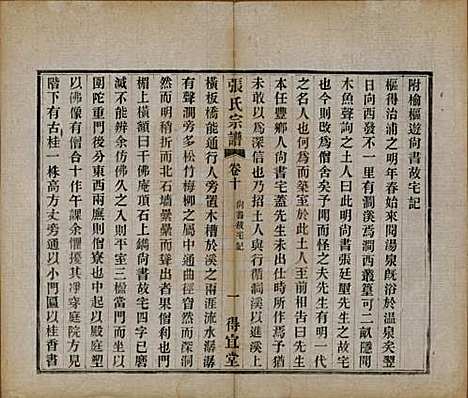 附榆樞遊尚書故宅記
樞得治浦之明年春始來閱湯泉旣浴於溫泉矣翌
日向西發不一里有澗溪爲澗西叢篁可二畝隱聞
木魚聲詢之土人曰此明尚書張廷璽先生之故宅
也今則懿而爲僧舍矣予聞先生有明一代
之名人也何爲而築室於此夫土人至前相告曰先生
本任豐鄉人尚書宅蓋先生出仕時所作焉予猶
未敢以爲深信也乃招土人與行循澗溪以進溪上
橫板橋能通行人旁置木槽於溪之兩涯流水潺潺
有聲澗旁多松竹梅柳之屬中通曲徑窅然而深洞
然而明稍折而北石墻疊疊而砌比戶出焉其聲
楣上橫額曰干佛庵頂石上鐫尚書故宅四字已磨
滅不能辨余彷佛久之入則平室三楹蓋當門而中
團陀重門後分東西兩庭則僧寮在東以殿庭塑
以佛像有僧合十作午課余懼擾其淨穿庭院方見
階下有古桂一株高方丈旁通以小門區以桂香書
張氏宗譜
卷十
尚書故宅記
一
得宜堂